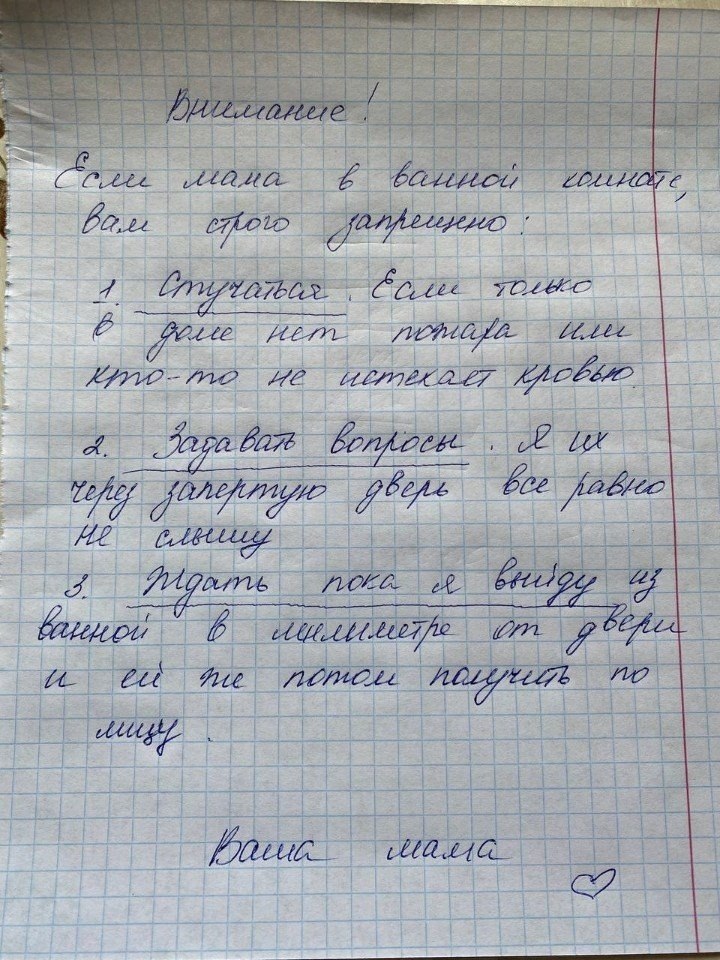 Внимание!
Если мама в ванной комнате,
вам строго запрещено:
1. Стучаться. Если только
в доме нет пожара или
кто-то не истекает кровью.
2. Задавать вопросы. Я их
через запертую дверь все равно
не слышу
3. Ждать пока я выйду из
ванной в милиметре от двери
и ей же потом получить по
лицу.
Ваша мама